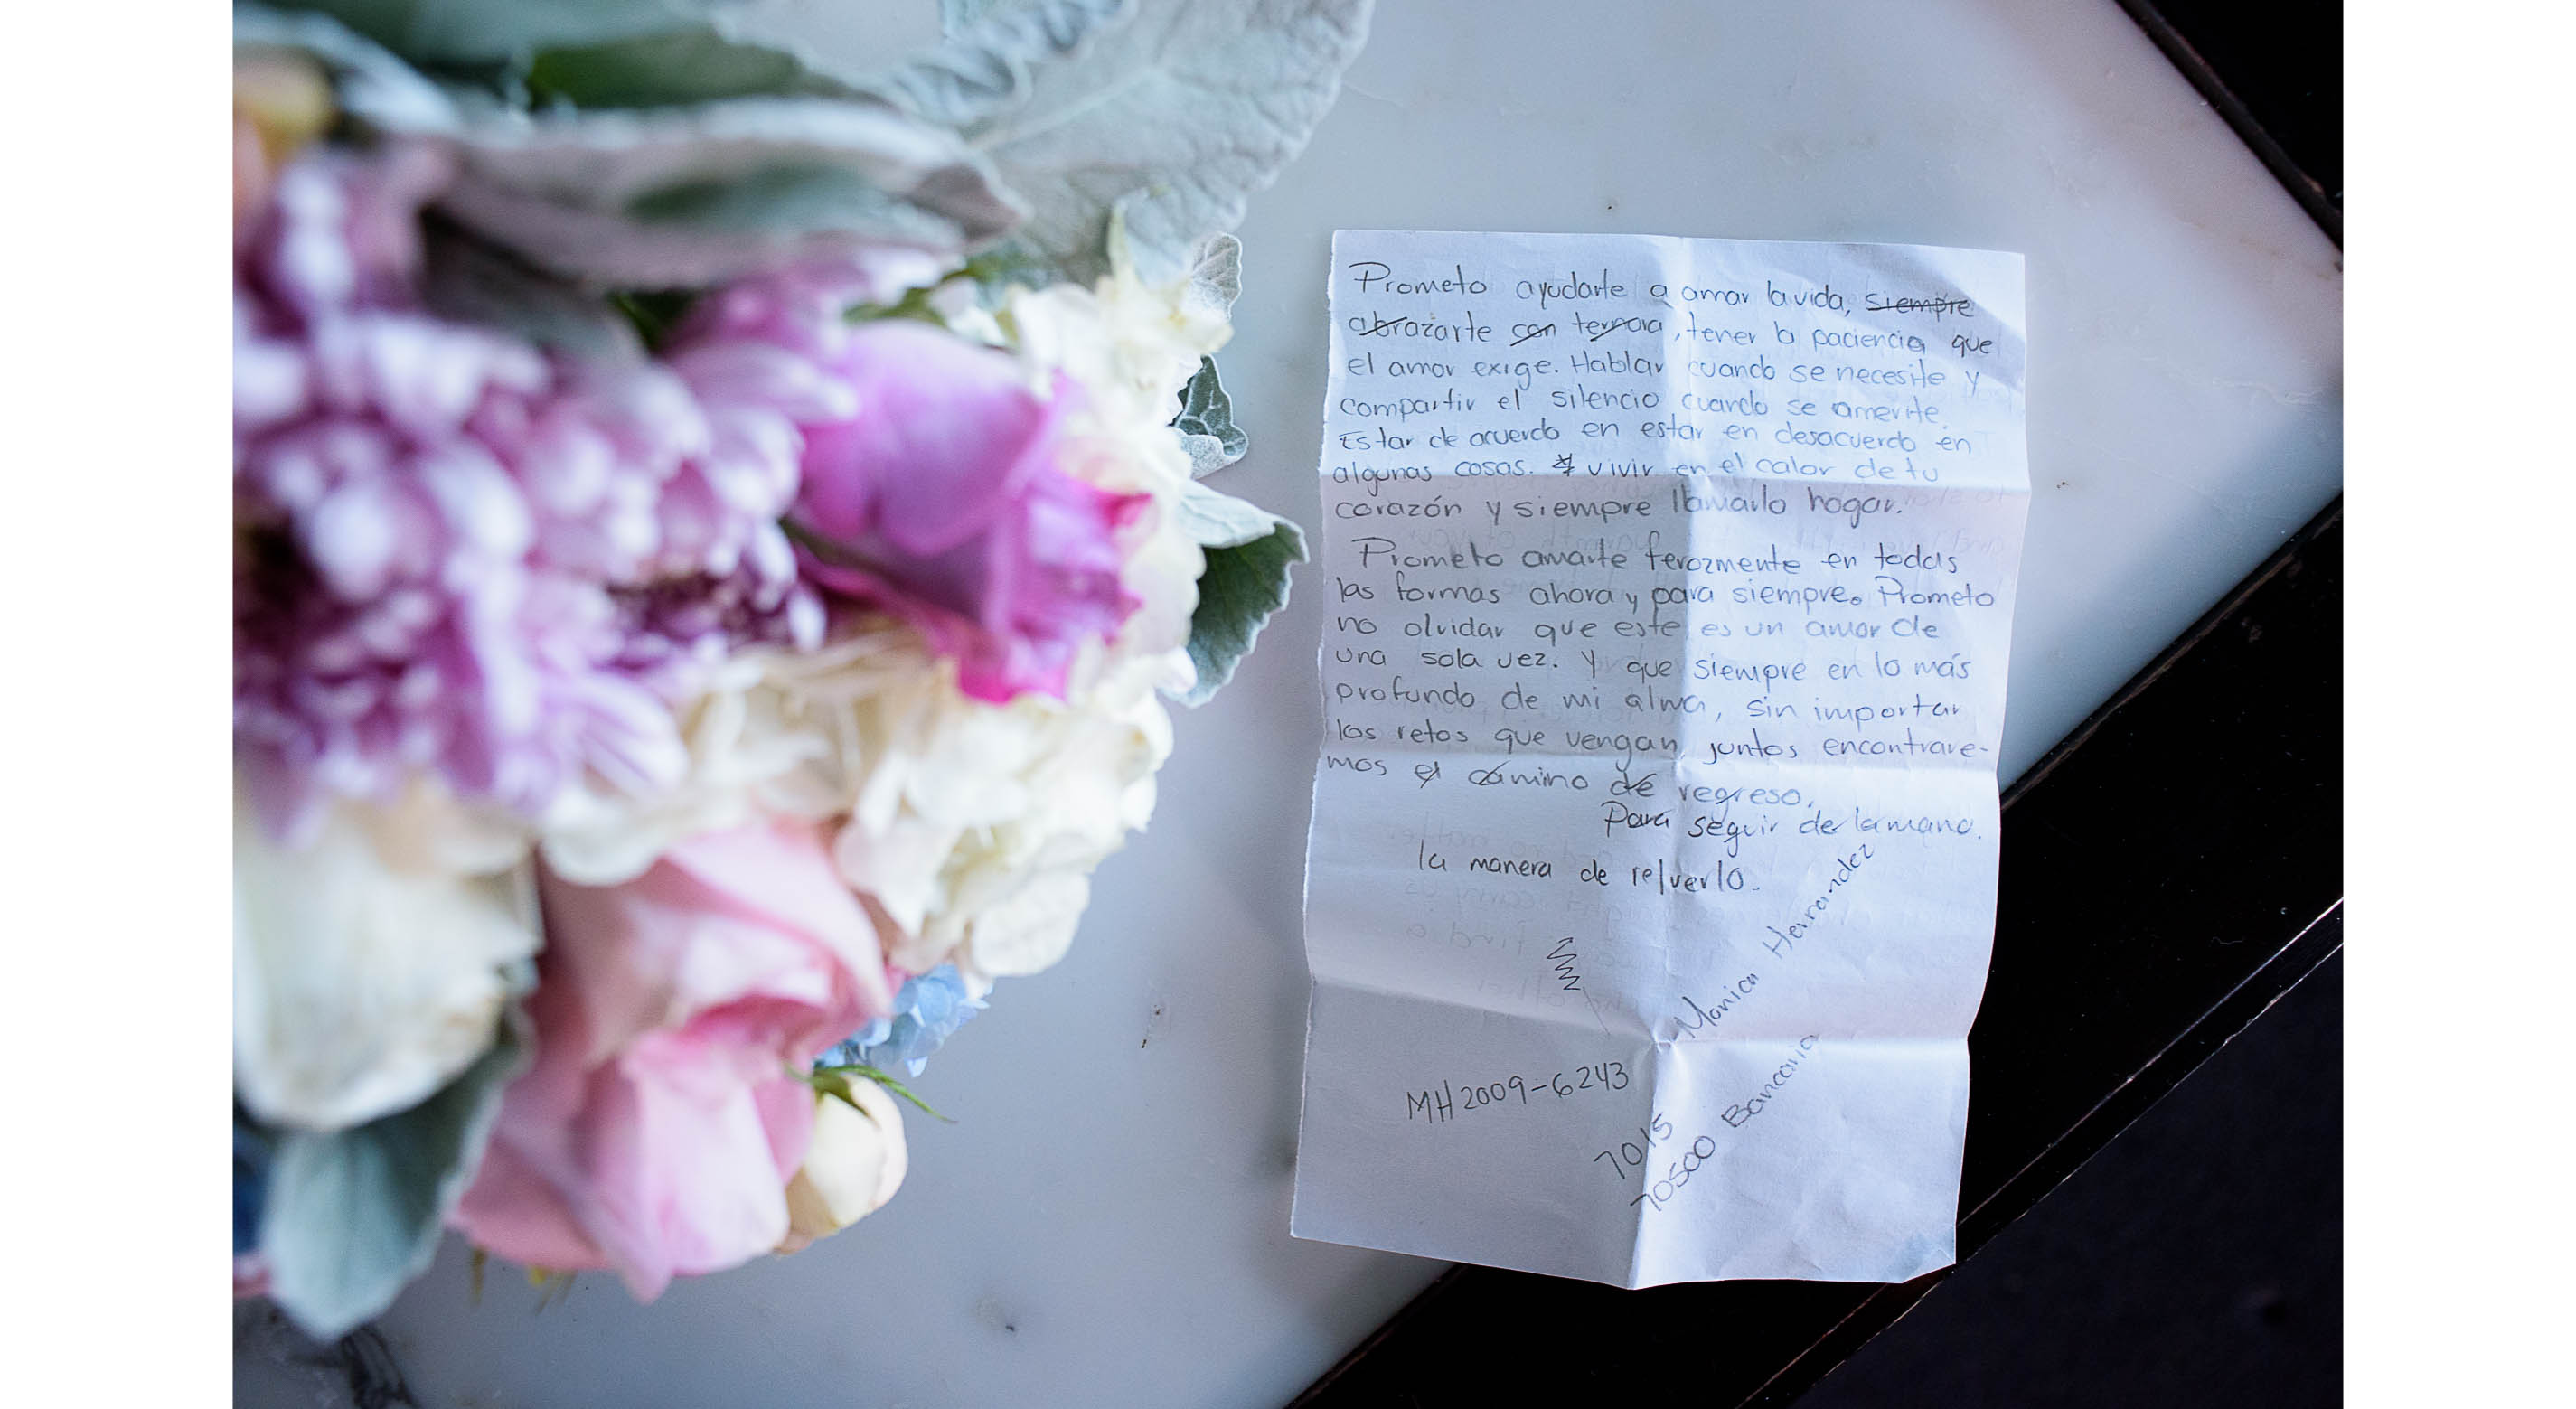 Prometo ayudarte a amar la vida, siempre
abrazarte con ternura, tener la paciencia que
el amor exige. Hablar cuando se necesite y
compartir el silencio cuando se amerite.
Estar de acuerdo en estar en desacuerdo en
algunas cosas. vivir en el calor de tu
corazón y siempre llamarlo hogar.
Prometo amarte ferozmente en todas
las formas ahora y para siempre. Prometo
no olvidar que este es un amor de
una sola vez. Y que siempre en lo más
profundo de mi alma, sin importar
los retos que vengan juntos encontrare-
mos el camino de regreso.
Para seguir de la mano.
la manera de
Monica Hernandez
MH2009-6243
7015
70500 Bancaria